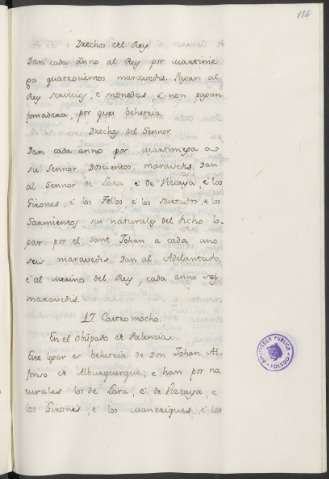 116
Drechos del Rey
Dan cada anno al Rey por martiniega
ga quatrocientos maravedis. Pagan al
Rey servicios, e monedas, e non pagan
fonsadera, por que es behetria.
Drechos del Sennor
Dan cada anno por martiniega a
su Sennor doscientos maravedis. Dan
al Sennor de Lara e de Vizcaya e los
Girones e los e los e los
Sarmientos su naturales del dicho lo
gar por el Sant Johan a cada uno
seis maravedis. Dan al Adelantado,
e al merino del Rey, cada anno
maravedis.
17 Castro mocho.
En el obispado de Palencia.
Este logar es behetria de Don Johan Al
fonso de Alburquerque, e han por na
turales los de Lara, e de Vizcaya e
los Girones, e los manriques, e los
BIBLIOTECA PUBLICA
TOLEDO